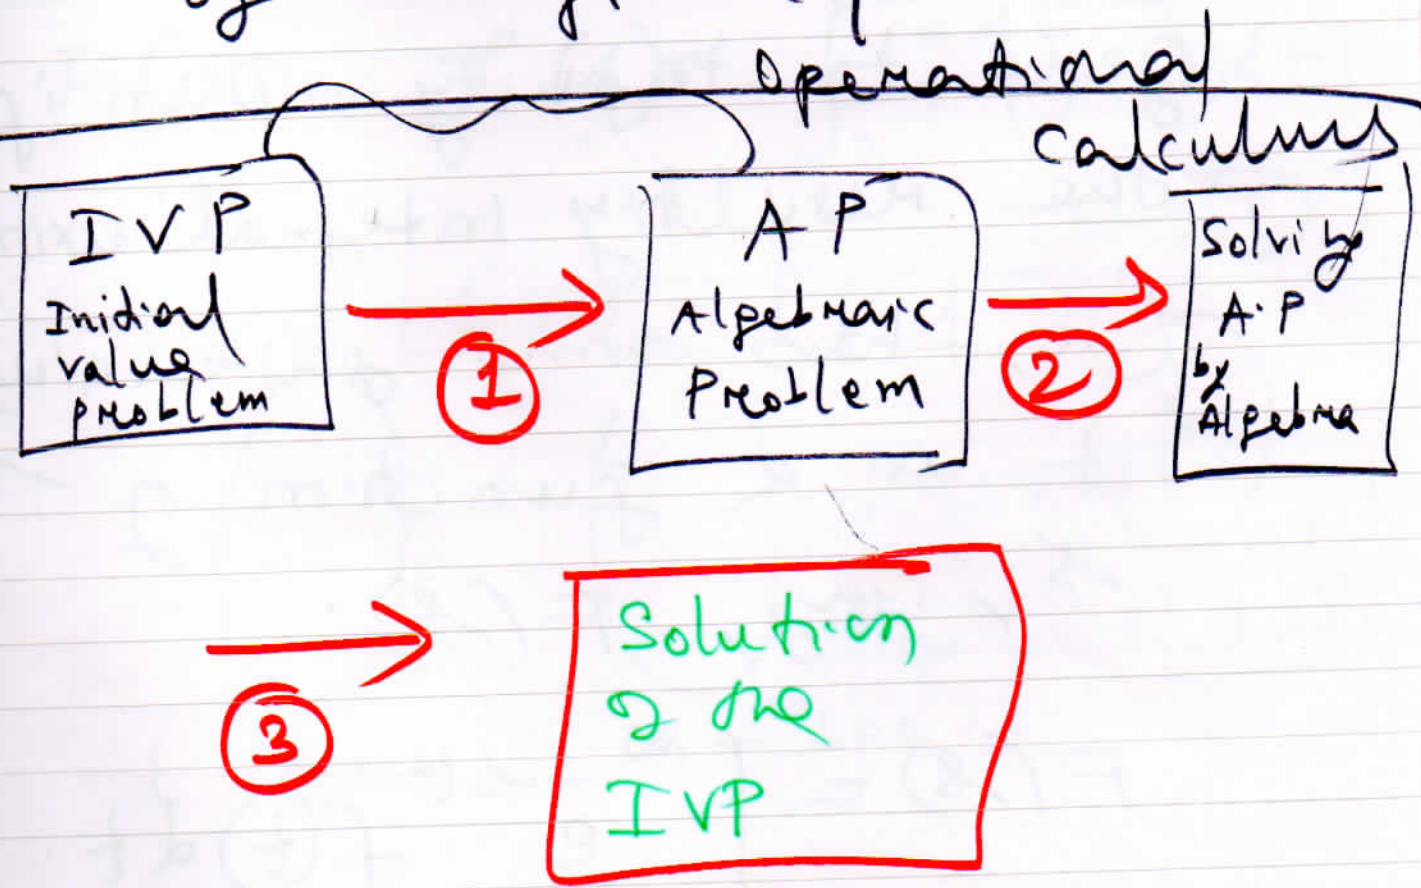 Operational
Calculus
IVP
Initial
value
problem
1
AP
Algebraic
Problem
2
Solving
A.P
by
Algebra
3
Solution
of the
IVP